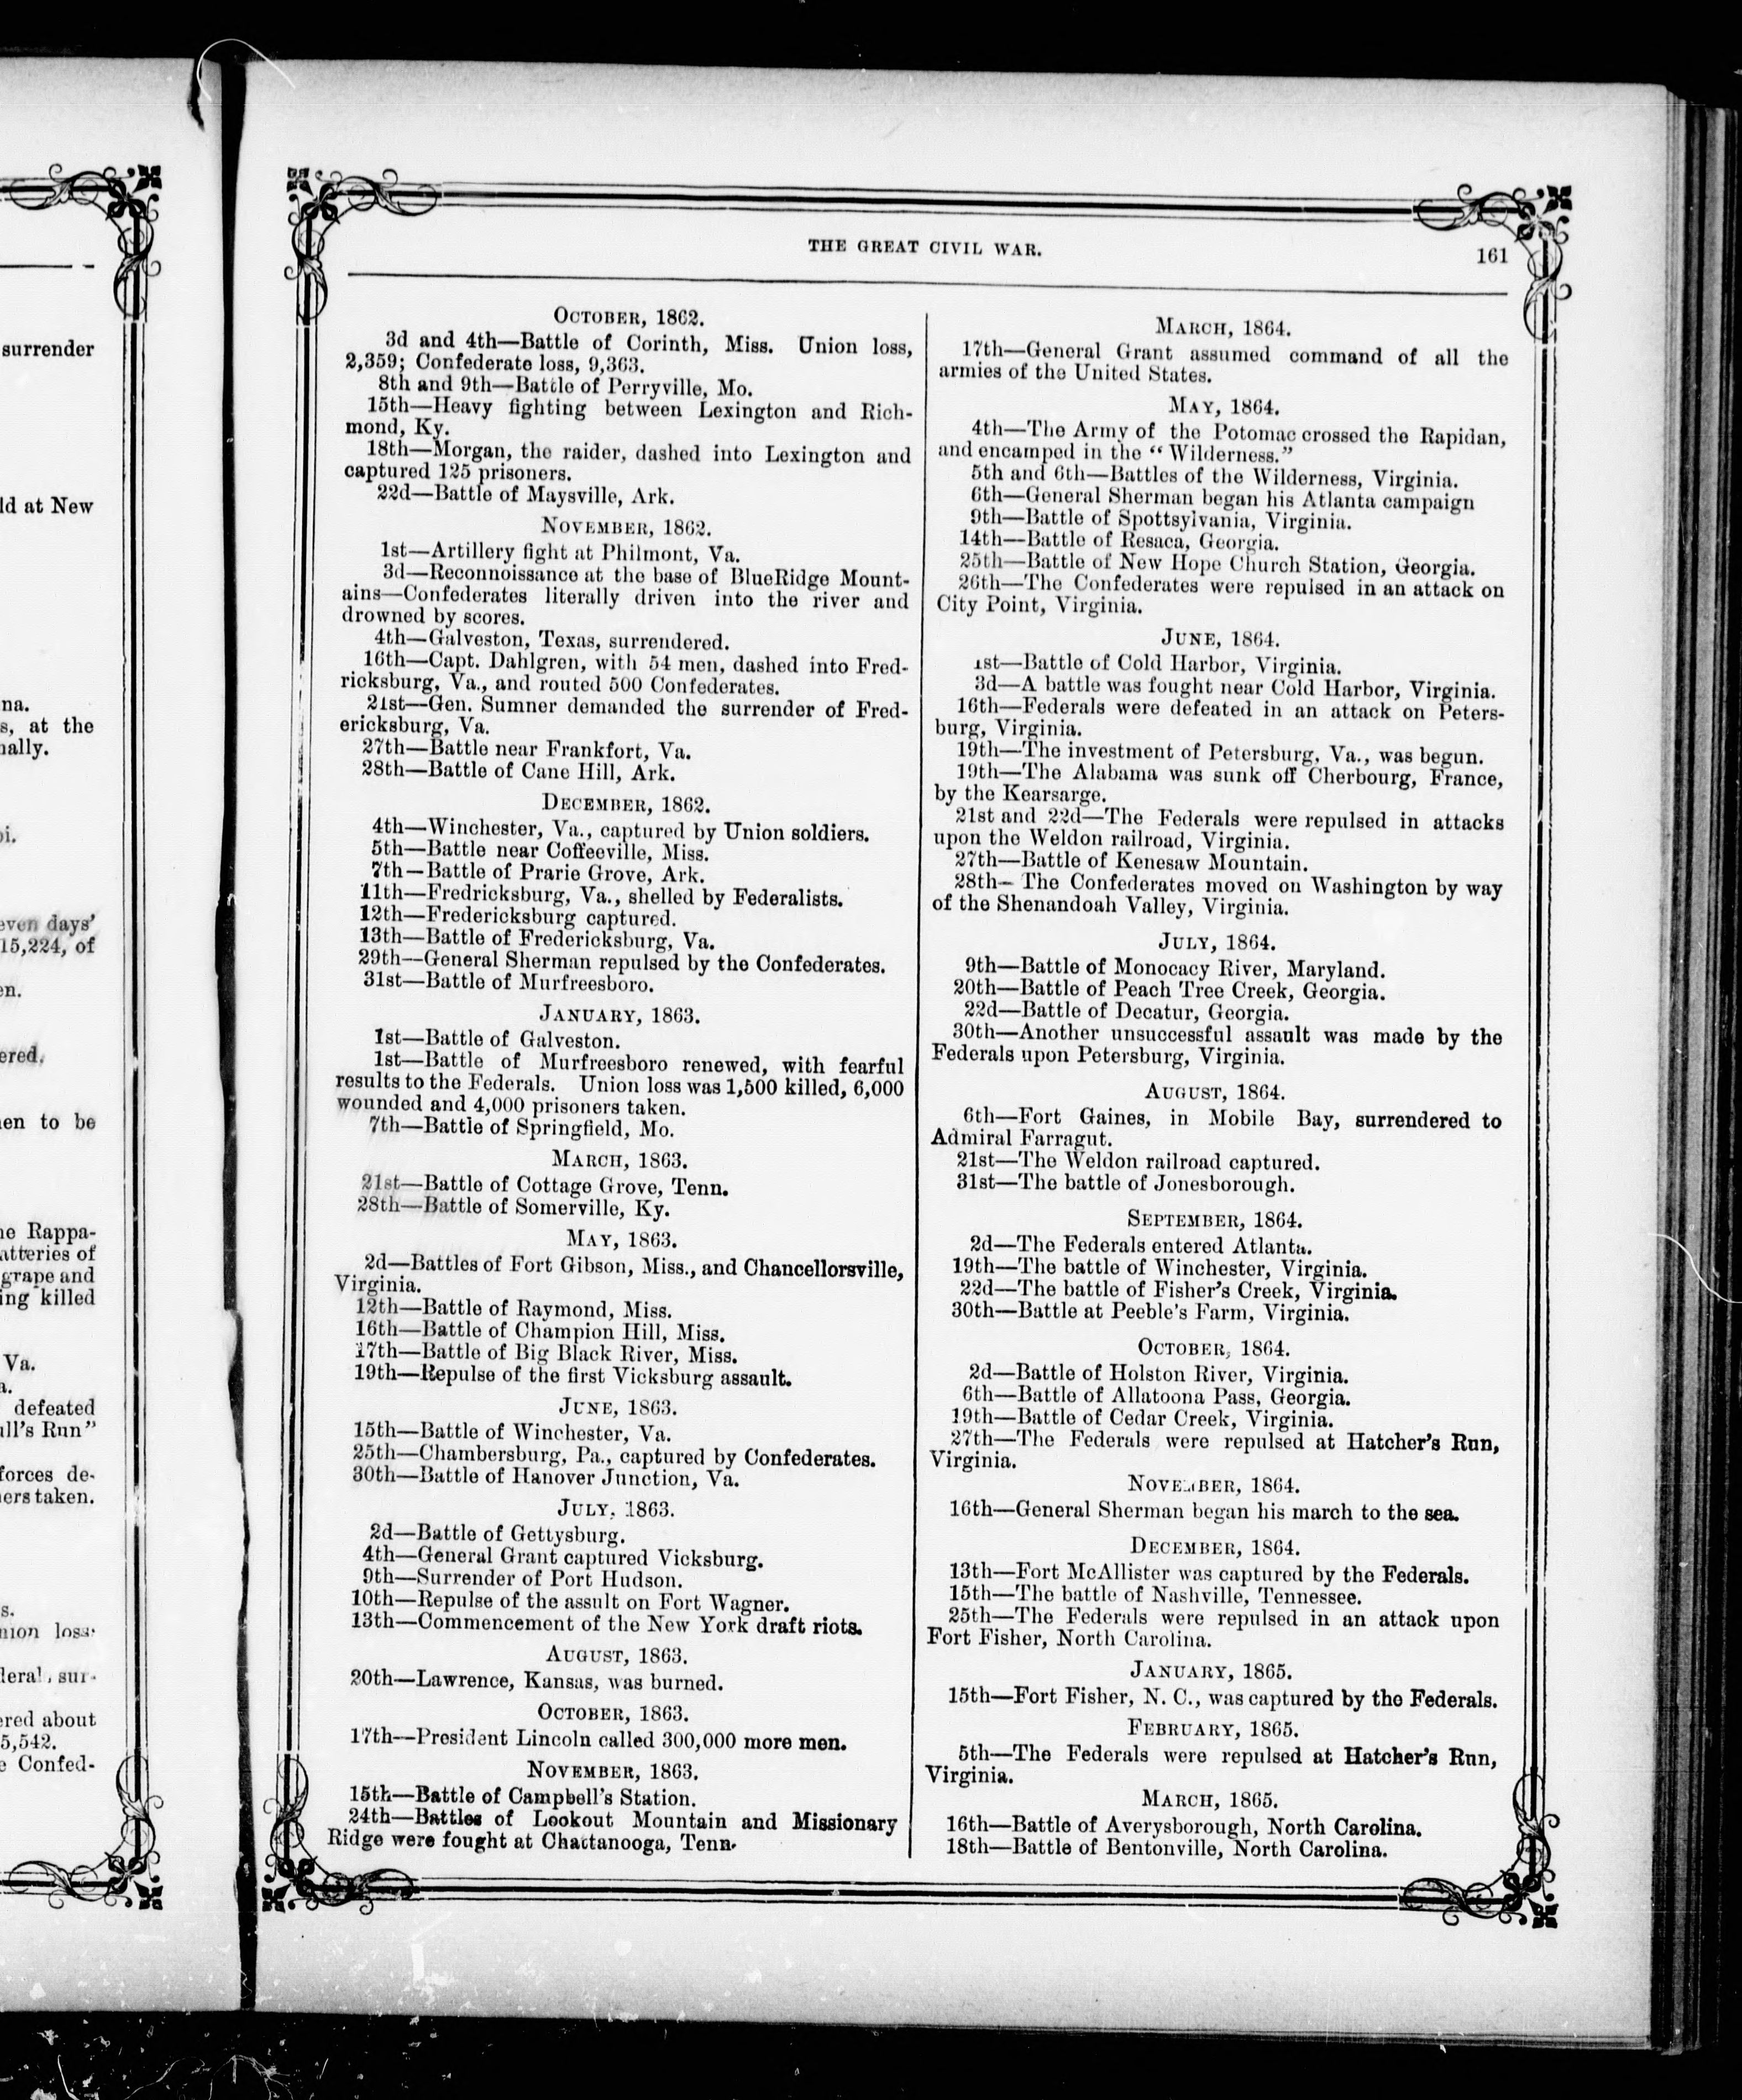 surrender
ld at New
na.
s, at the
nally.
pi.
even days'
15,224, of
en.
ered.
en to be
he Rappa-
atteries of
grape and
ing killed
Va.
a.
defeated
ull's Run"
forces de-
ers taken.
s.
nion loss
leral, sur-
ered about
5,542.
e Confed-
THE GREAT CIVIL WAR.
161
OCTOBER, 1862.
3d and 4th—Battle of Corinth, Miss. Union loss,
2,359; Confederate loss, 9,363.
8th and 9th—Battle of Perryville, Mo.
15th—Heavy fighting between Lexington and Rich-
mond, Ky.
18th—Morgan, the raider, dashed into Lexington and
captured 125 prisoners.
22d—Battle of Maysville, Ark.
NOVEMBER, 1862.
1st—Artillery fight at Philmont, Va.
3d—Reconnoissance at the base of BlueRidge Mount-
ains—Confederates literally driven into the river and
drowned by scores.
4th—Galveston, Texas, surrendered.
16th—Capt. Dahlgren, with 54 men, dashed into Fred-
ricksburg, Va., and routed 500 Confederates.
21st—Gen. Sumner demanded the surrender of Fred-
ericksburg, Va.
27th—Battle near Frankfort, Va.
28th—Battle of Cane Hill, Ark.
DECEMBER, 1862.
4th—Winchester, Va., captured by Union soldiers.
5th—Battle near Coffeeville, Miss.
7th—Battle of Prarie Grove, Ark.
11th—Fredricksburg, Va., shelled by Federalists.
12th—Fredericksburg captured.
13th—Battle of Fredericksburg, Va.
29th—General Sherman repulsed by the Confederates.
31st—Battle of Murfreesboro.
JANUARY, 1863.
1st—Battle of Galveston.
1st—Battle of Murfreesboro renewed, with fearful
results to the Federals. Union loss was 1,500 killed, 6,000
wounded and 4,000 prisoners taken.
7th—Battle of Springfield, Mo.
MARCH, 1863.
21st—Battle of Cottage Grove, Tenn.
28th—Battle of Somerville, Ky.
MAY, 1863.
2d—Battles of Fort Gibson, Miss., and Chancellorsville,
Virginia.
12th—Battle of Raymond, Miss.
16th—Battle of Champion Hill, Miss.
17th—Battle of Big Black River, Miss.
19th—Repulse of the first Vicksburg assault.
JUNE, 1863.
15th—Battle of Winchester, Va.
25th—Chambersburg, Pa., captured by Confederates.
30th—Battle of Hanover Junction, Va.
JULY, 1863.
2d—Battle of Gettysburg.
4th—General Grant captured Vicksburg.
9th—Surrender of Port Hudson.
10th—Repulse of the assult on Fort Wagner.
13th—Commencement of the New York draft riots.
AUGUST, 1863.
20th—Lawrence, Kansas, was burned.
OCTOBER, 1863.
17th—President Lincoln called 300,000 more men.
NOVEMBER, 1863.
15th—Battle of Campbell's Station.
24th—Battles of Lookout Mountain and Missionary
Ridge were fought at Chattanooga, Tenn.
MARCH, 1864.
17th—General Grant assumed command of all the
armies of the United States.
MAY, 1864.
4th—The Army of the Potomac crossed the Rapidan,
and encamped in the "Wilderness."
5th and 6th—Battles of the Wilderness, Virginia.
6th—General Sherman began his Atlanta campaign
9th—Battle of Spottsylvania, Virginia.
14th—Battle of Resaca, Georgia.
25th—Battle of New Hope Church Station, Georgia.
26th—The Confederates were repulsed in an attack on
City Point, Virginia.
JUNE, 1864.
1st—Battle of Cold Harbor, Virginia.
3d—A battle was fought near Cold Harbor, Virginia.
16th—Federals were defeated in an attack on Peters-
burg, Virginia.
19th—The investment of Petersburg, Va., was begun.
19th—The Alabama was sunk off Cherbourg, France,
by the Kearsarge.
21st and 22d—The Federals were repulsed in attacks
upon the Weldon railroad, Virginia.
27th—Battle of Kenesaw Mountain.
28th—The Confederates moved on Washington by way
of the Shenandoah Valley, Virginia.
JULY, 1864.
9th—Battle of Monocacy River, Maryland.
20th—Battle of Peach Tree Creek, Georgia.
22d—Battle of Decatur, Georgia.
30th—Another unsuccessful assault was made by the
Federals upon Petersburg, Virginia.
AUGUST, 1864.
6th—Fort Gaines, in Mobile Bay, surrendered to
Admiral Farragut.
21st—The Weldon railroad captured.
31st—The battle of Jonesborough.
SEPTEMBER, 1864.
2d—The Federals entered Atlanta.
19th—The battle of Winchester, Virginia.
22d—The battle of Fisher's Creek, Virginia.
30th—Battle at Peeble's Farm, Virginia.
OCTOBER, 1864.
2d—Battle of Holston River, Virginia.
6th—Battle of Allatoona Pass, Georgia.
19th—Battle of Cedar Creek, Virginia.
27th—The Federals were repulsed at Hatcher's Run,
Virginia.
NOVEMBER, 1864.
16th—General Sherman began his march to the sea.
DECEMBER, 1864.
13th—Fort McAllister was captured by the Federals.
15th—The battle of Nashville, Tennessee.
25th—The Federals were repulsed in an attack upon
Fort Fisher, North Carolina.
JANUARY, 1865.
15th—Fort Fisher, N. C., was captured by the Federals.
FEBRUARY, 1865.
5th—The Federals were repulsed at Hatcher's Run,
Virginia.
MARCH, 1865.
16th—Battle of Averysborough, North Carolina.
18th—Battle of Bentonville, North Carolina.